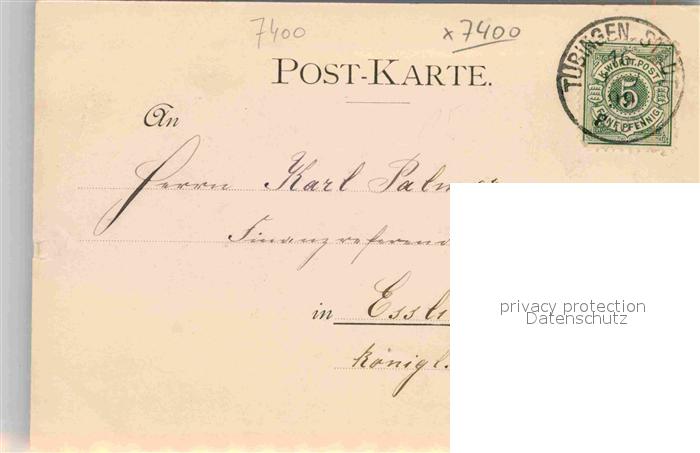 7400
x 7400
POST-KARTE.
TÜBINGEN. ST
K. WÜRTT. POST
5
FÜNF PFENNIG
An
Herrn Karl Palmer
Finanzreferend
in Essli
königl.
privacy protection
Datenschutz